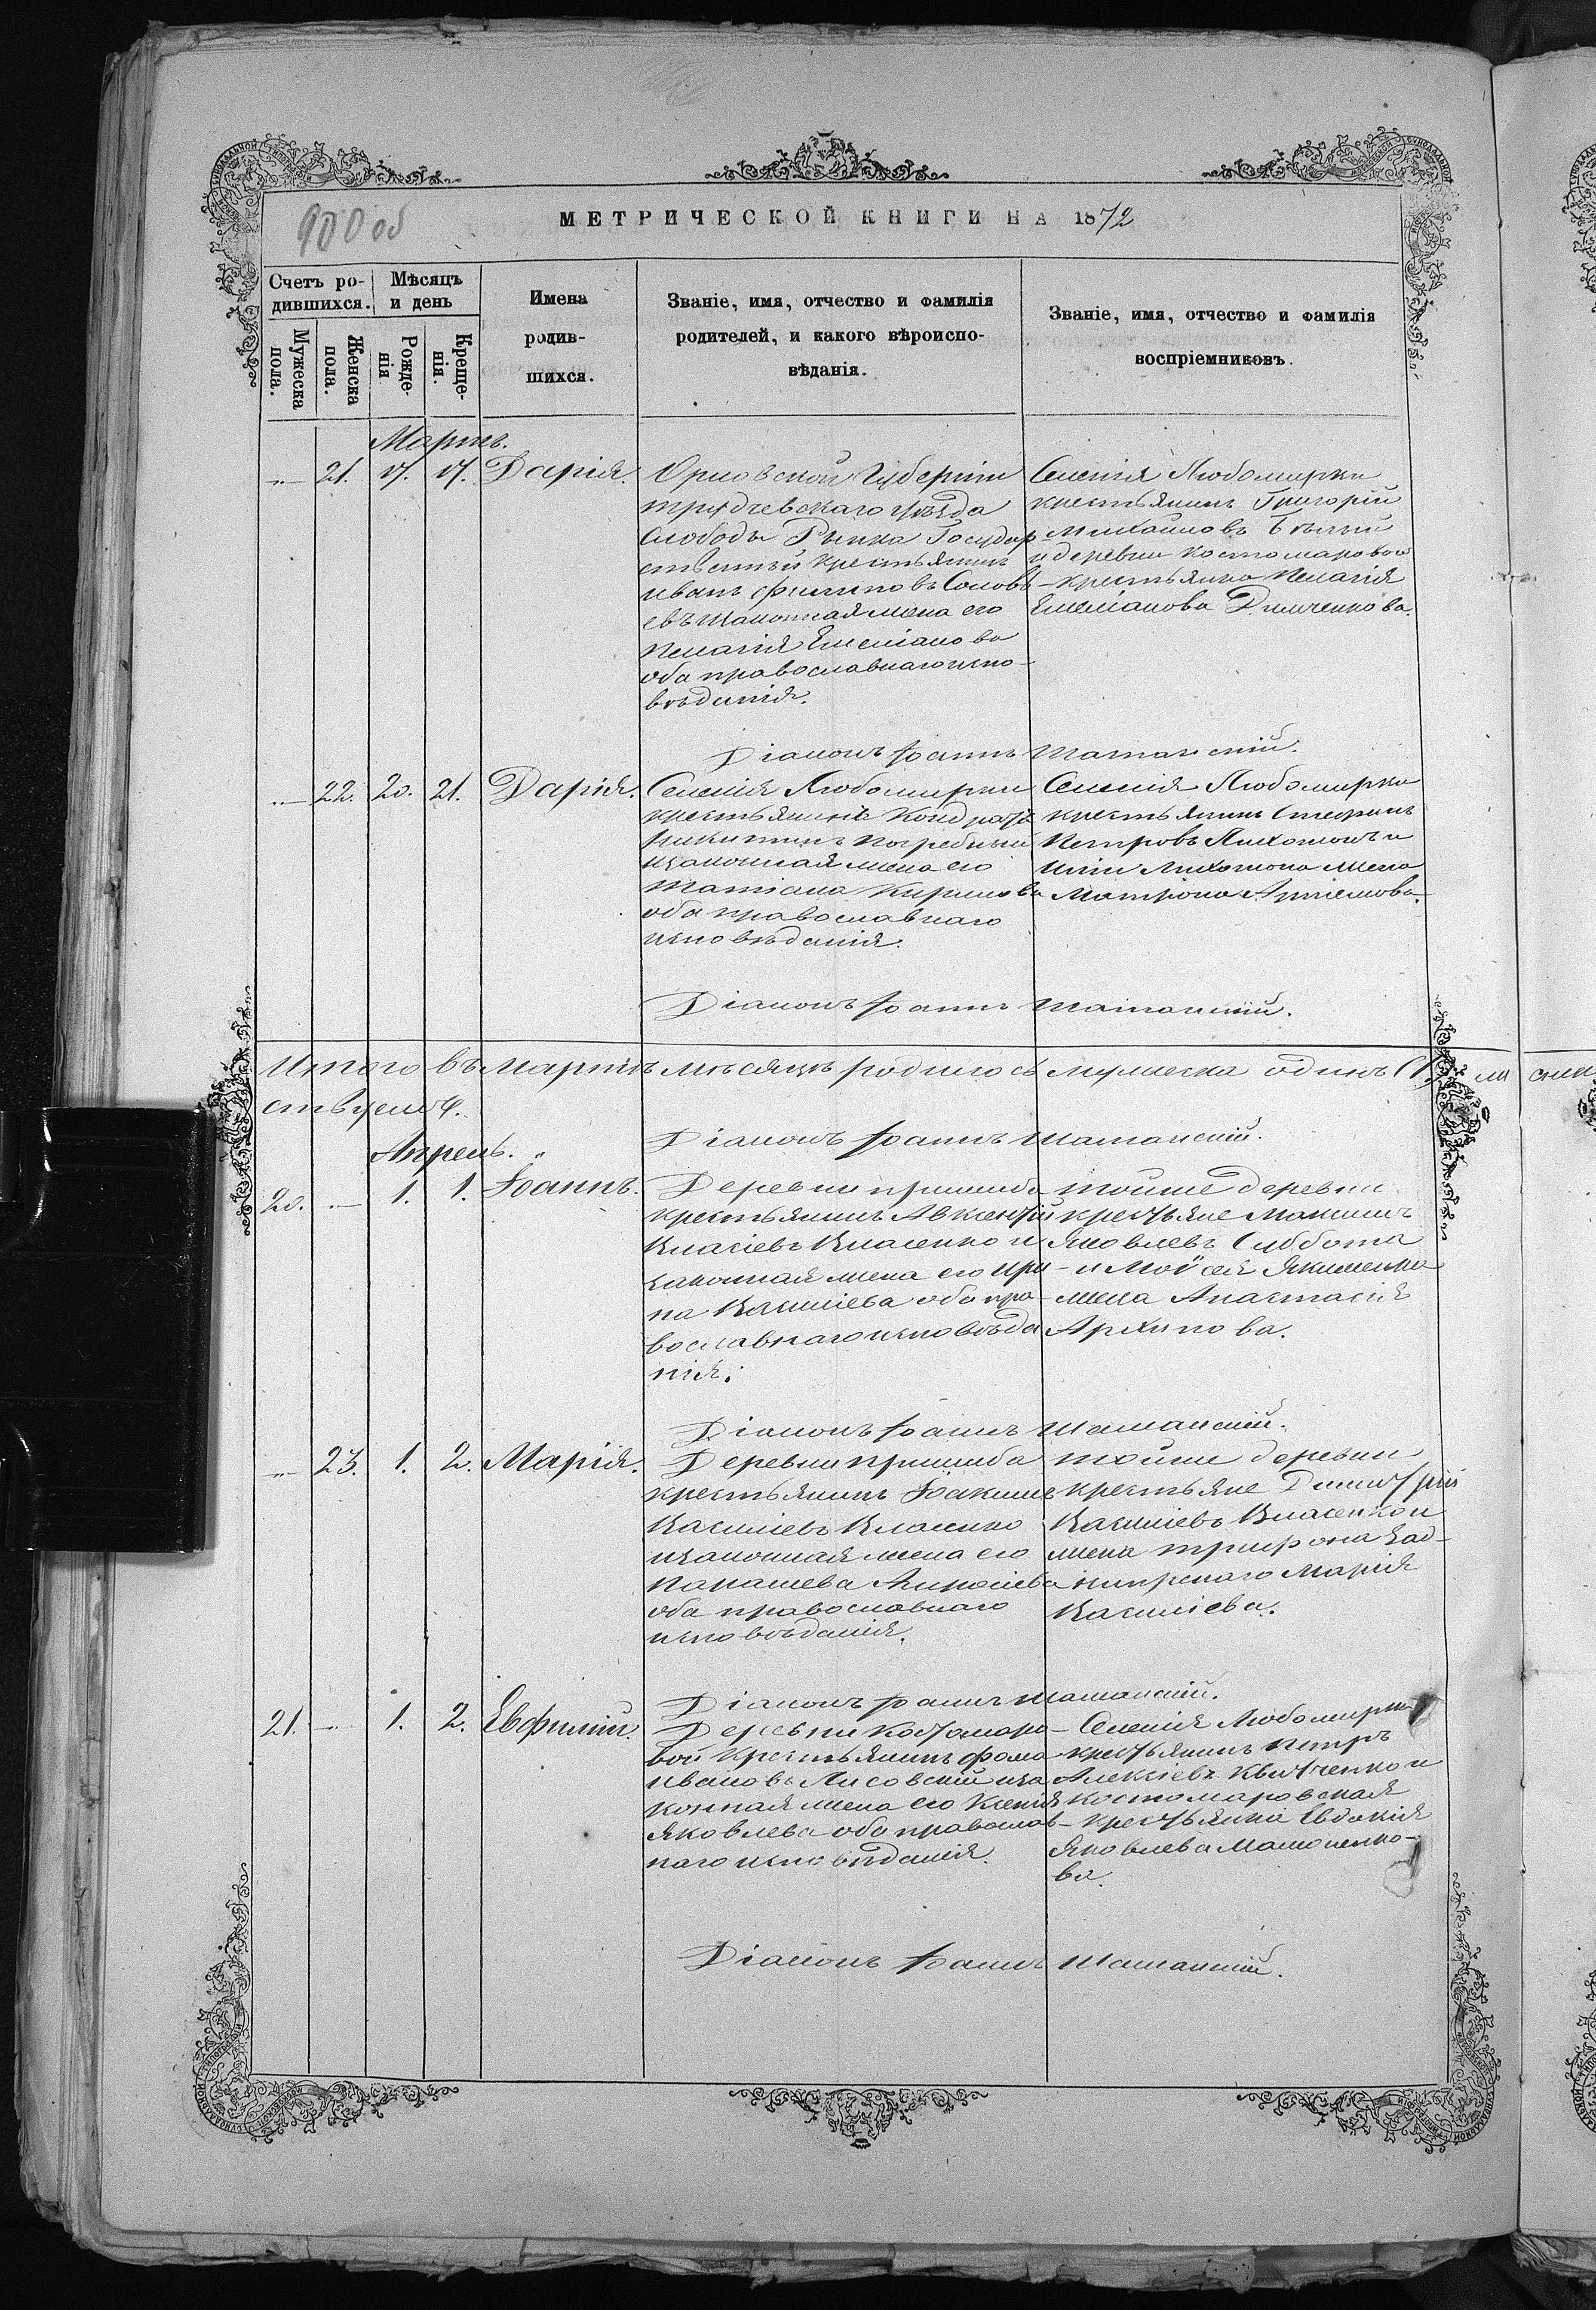 900 об
МЕТРИЧЕСКОЙ КНИГИ НА 1872
Счетъ ро-
дившихся.
Мужеска
пола.
Женска
пола.
Мѣсяцъ
и день
Рожде-
нія
Креще-
нія.
Имена
родив-
шихся.
Званіе, имя, отчество и фамилія
родителей, и какого вѣроиспо-
вѣданія.
Званіе, имя, отчество и фамилія
воспріемниковъ.
Мартъ.
21. 17. 17. Дарія.
Орловской Губерніи
трубчевскаго уѣзда
Слободы Государ
ственный крестьянинъ
иванъ филиповъ Соловь
евъ и законная жена его
пелагія Емеліанова
оба православнаго испо-
вѣданія.
Селенія Любомирки
крестьянинъ Григорій
Михайловъ
и деревни Костомаровой
крестьянка пелагія
Емеліанова Димченкова.
Діаконъ Іоаннъ Шаманскій.
22. 20. 21. Дарія.
Селенія Любомирки
крестьянинъ Кондратъ
никитинъ погребный
и законная жена его
татіана Кирилова
оба православнаго
исповѣданія.
Селенія Любомирки
крестьянинъ Стефанъ
Петровъ и
жена
Матрона Артемова.
Діаконъ Іоаннъ Шаманскій.
Итого въ мартѣ мѣсяцѣ родилось мужеска одинъ (1)
Діаконъ Іоаннъ Шаманскій.
Апрель.
20. 1. 1. Іоаннъ.
Деревни пришиба
крестьянинъ Авксентій
Власіевъ Власенко и
законная жена его ири-
на Василіева оба пра-
вославнаго исповѣда
нія.
тойже деревни
крестьяне Максимъ
Яковлевъ Суббота
и Моѵсея Якименка
жена Анастасія
Архипова.
Діаконъ Іоаннъ Шаманскій.
23. 1. 2. Марія.
Деревни пришиба
крестьянинъ Іоакимъ
Василіевъ Власенко
и законная жена его
оба православнаго
исповѣданія.
тойже деревни
крестьяне Димитрій
Василіевъ Власенко и
жена трифона Зад-
нипрскаго Марія
Василіева.
Діаконъ Іоаннъ Шаманскій.
21. 1. 2. Евфимій.
Деревни Костомаро-
вой крестьянинъ фома
ивановъ Лисовскій и за
конная жена его Ксенія
Яковлева оба православ-
наго исповѣданія.
Селенія Любомирки
крестьянинъ петръ
Алексіевъ Квитченко и
костомаровская
крестьянка Евдокія
Яковлева
ва.
Діаконъ Іоаннъ Шаманскій.